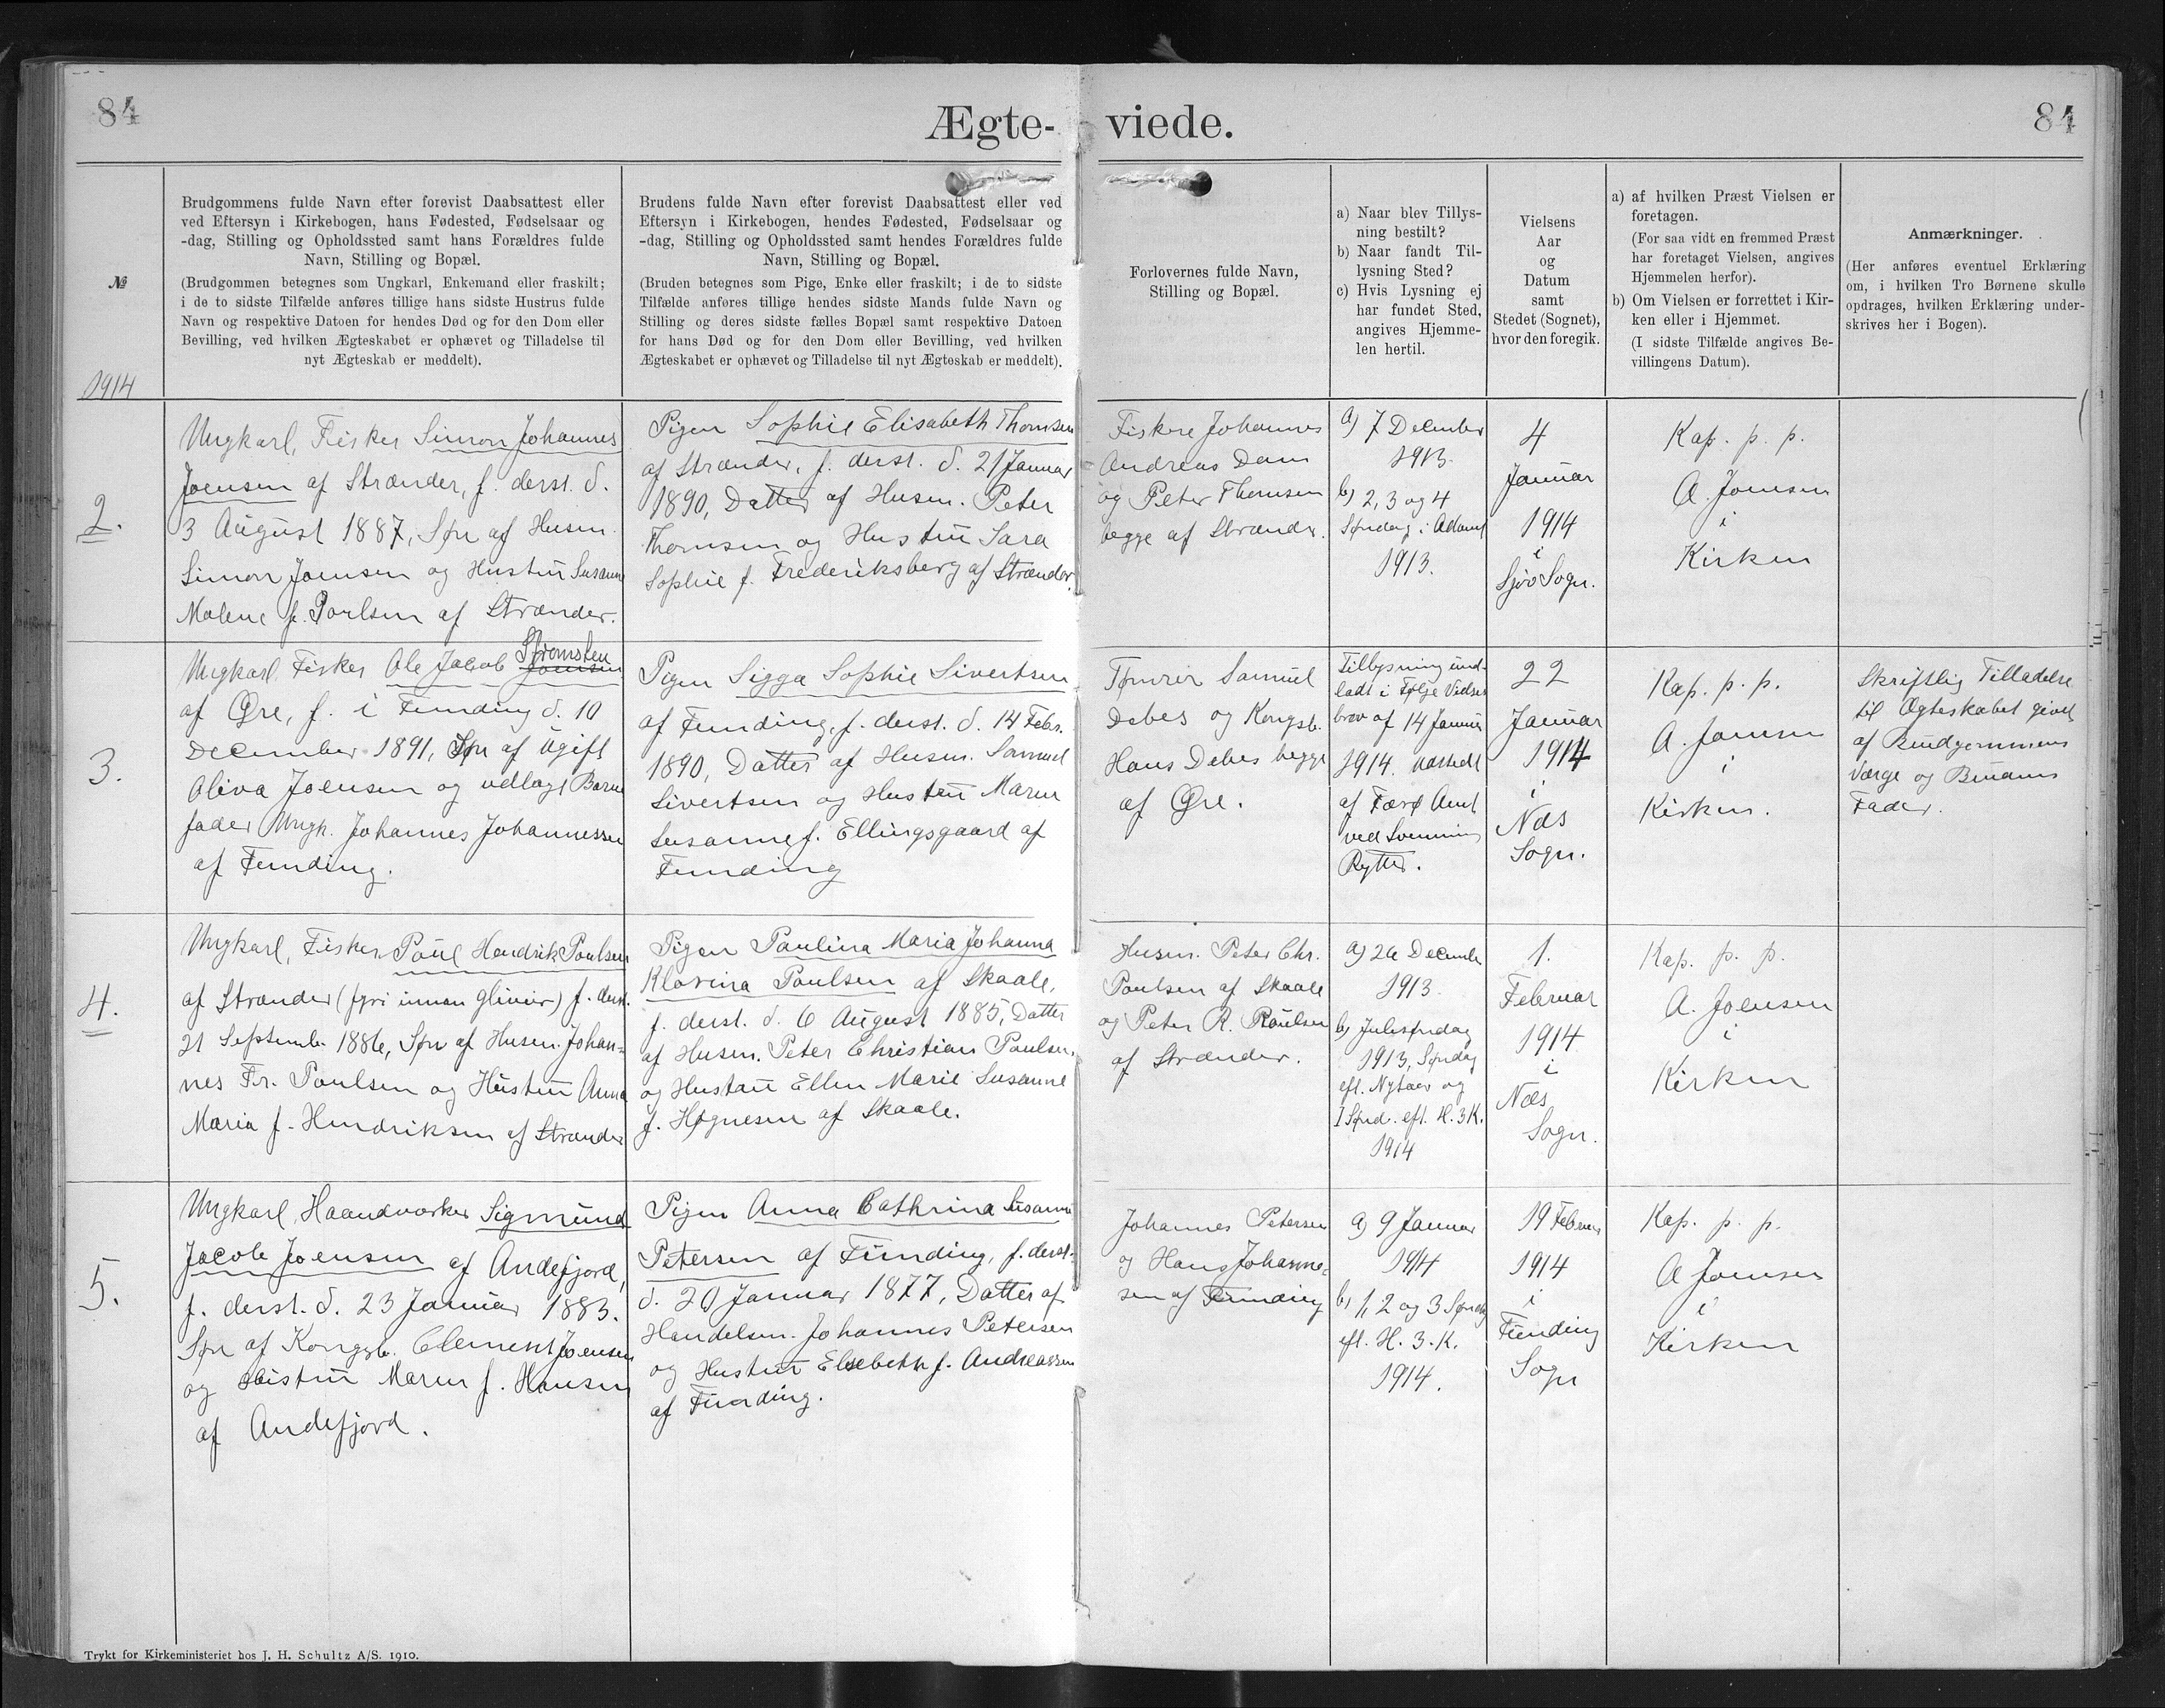 84
Ægte-
viede.
84
№
1914
Brudgommens fulde Navn efter forevist Daabsattest eller
ved Eftersyn i Kirkebogen, hans Fødested, Fødselsaar og
-dag, Stilling og Opholdssted samt hans Forældres fulde
Navn, Stilling og Bopæl.
(Brudgommen betegnes som Ungkarl, Enkemand eller fraskilt;
i de to sidste Tilfælde anføres tillige hans sidste Hustrus fulde
Navn og respektive Datoen for hendes Død og for den Dom eller
Bevilling, ved hvilken Ægteskabet er ophævet og Tilladelse til
nyt Ægteskab er meddelt).
Brudens fulde Navn efter forevist Daabsattest eller ved
Eftersyn i Kirkebogen, hendes Fødested, Fødselsaar og
-dag, Stilling og Opholdssted samt hendes Forældres fulde
Navn, Stilling og Bopæl.
(Bruden betegnes som Pige, Enke eller fraskilt; i de to sidste
Tilfælde anføres tillige hendes sidste Mands fulde Navn og
Stilling og deres sidste fælles Bopæl samt respektive Datoen
for hans Død og for den Dom eller Bevilling, ved hvilken
Ægteskabet er ophævet og Tilladelse til nyt Ægteskab er meddelt).
Forlovernes fulde Navn,
Stilling og Bopæl.
a) Naar blev Tillys-
ning bestilt?
b) Naar fandt Til-
lysning Sted?
c) Hvis Lysning ej
har fundet Sted,
angives Hjemme-
len hertil.
Vielsens
Aar
og
Datum
samt
Stedet (Sognet),
hvor den foregik.
a) af hvilken Præst Vielsen er
foretagen.
(For saa vidt en fremmed Præst
har foretaget Vielsen, angives
Hjemmelen herfor).
b) Om Vielsen er forrettet i Kir-
ken eller i Hjemmet.
(I sidste Tilfælde angives Be-
villingens Datum).
Anmærkninger.
(Her anføres eventuel Erklæring
om, i hvilken Tro Børnene skulle
opdrages, hvilken Erklæring under-
skrives her i Bogen).
2.
Ungkarl, Fisker Simon Johannes
Joensen af Strænder, f. derst. d.
3 August 1887, Søn af Husm.
Simon Joensen og Hustru Susanne
Malene f. Poulsen af Strænder.
Pigen Sophie Elisabeth Thomsen
af Strænder, f. derst. d. 21 Januar
1890, Datter af Husm. Peter
Thomsen og Hustru Sara
Sophie f. Frederiksberg af Strænder.
Fiskere Johannes
Andreas Dam
og Peter Thomsen
begge af Strænder.
a) 7 December
1913.
b) 2, 3 og 4
Søndag i Advent
1913.
4
Januar
1914
i
Sjov Sogn.
Kap. p. p.
A. Joensen
i
Kirken
3.
Ungkarl Fisker Ole Jacob Joensen
Strømsten
af Øre, f. i Funding d. 10
December 1891, Søn af ugift
Oliva Joensen og udlagt Barne
fader Ungk. Johannes Johannessen
af Funding.
Pigen Sigga Sophie Sivertsen
af Funding, f. derst. d. 14 Febr.
1890, Datter af Husm. Samuel
Sivertsen og Hustru Maren
Susanne f. Ellingsgaard af
Funding
Tømrer Samuel
Debes og Kongsb.
Hans Debes begge
af Øre.
Tillysning und-
ladt i Følge Vielses
brev af 14 Januar
1914 udstedt
af Færø Amt
ved
Rytter.
22
Januar
1914
i
Næs
Sogn.
Kap. p. p.
A. Joensen
i
Kirken.
Skriftlig Tilladelse
til Ægteskabet givet
af Brudgommens
Værge og Brudens
Fader.
4.
Ungkarl, Fisker Poul Hendrik Poulsen
af Strænder (fyri innan Glivur) f. derst.
21 September 1886, Søn af Husm. Johan-
nes Fr. Poulsen og Hustru Anna
Maria f. Hendriksen af Strænder
Pigen Paulina Maria Johanna
Klavina Poulsen af Skaale,
f. derst. d. 6 August 1885, Datter
af Husm. Peter Christian Poulsen
og Hustru Ellen Marie Susanne
f. Høgnesen af Skaale.
Husm. Peter Chr.
Poulsen af Skaale
og Peter R. Poulsen
af Strænder.
a) 26 December
1913.
b) Julesøndag
1913, Søndag
eft. Nytaar og
1 Sønd. eft. H. 3 K.
1914
1.
Februar
1914
i
Næs
Sogn.
Kap. p. p.
A. Joensen
i
Kirken
5.
Ungkarl, Haandværker Sigmund
Jacob Joensen af Andefjord,
f. derst. d. 23 Januar 1883.
Søn af Kongsb. Clement Joensen
og Hustru Maren f. Hansen
af Andefjord.
Pigen Anna Cathrina Susanne
Petersen af Funding, f. derst.
d. 20 Januar 1877, Datter af
Handelsm. Johannes Petersen
og Hustru Elsebeth f. Andreassen
af Funding.
Johannes Petersen
og Hans Johanne-
sen af Funding
a) 9 Januar
1914
b) 1, 2 og 3 Søndag
eft. H. 3. K.
1914.
19 Februar
1914
i
Funding
Sogn
Kap. p. p.
A Joensen
i
Kirken
Trykt for Kirkeministeriet hos J. H. Schultz A/S. 1910.